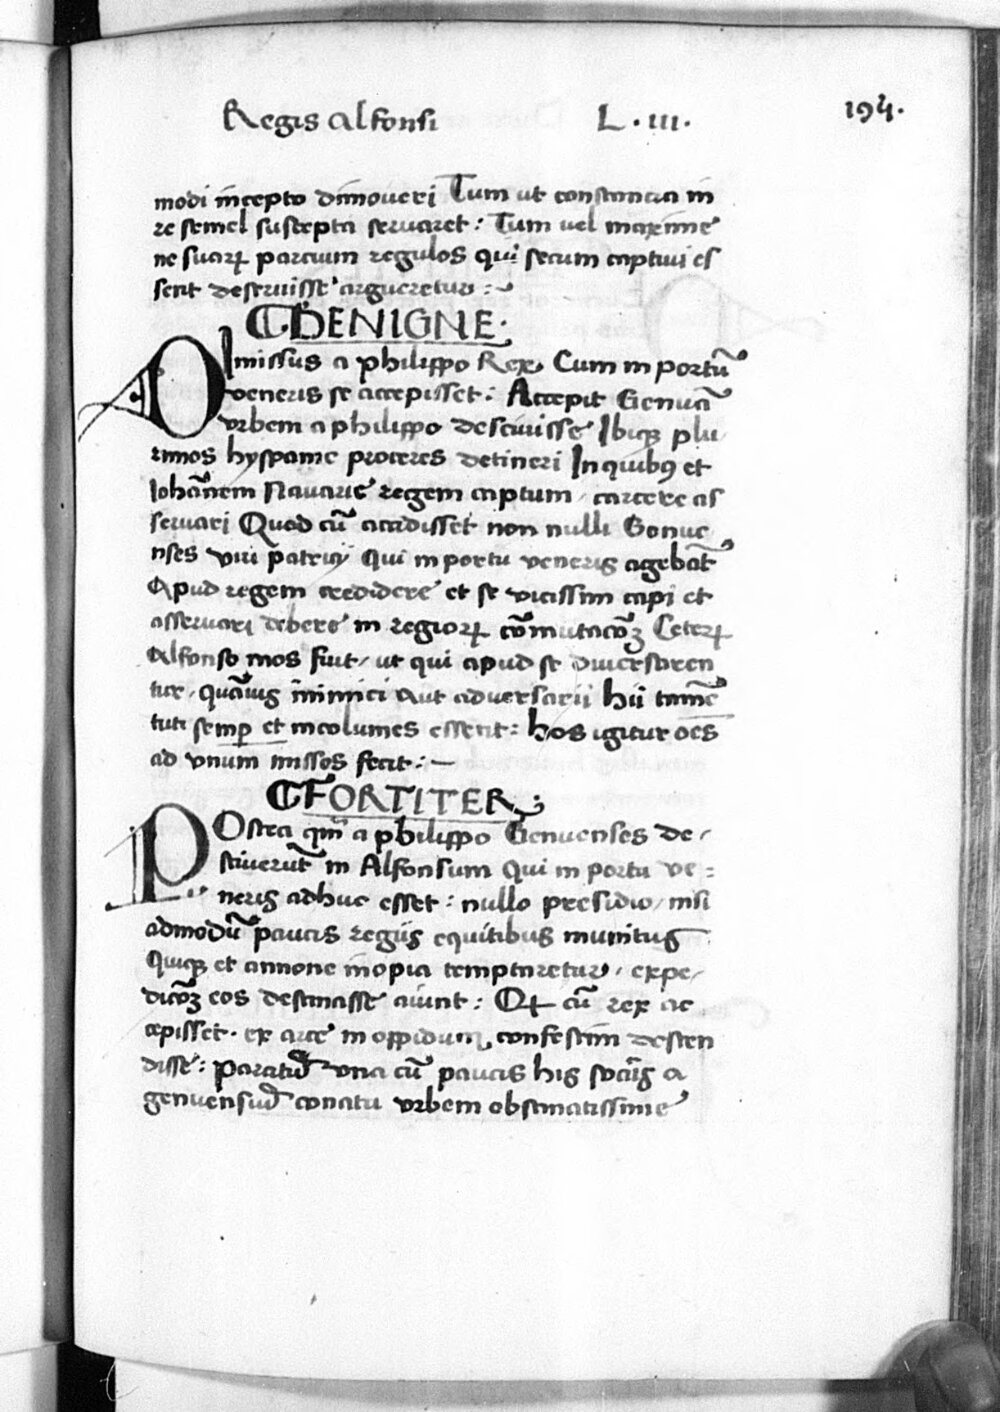 Regis Alfonsi L. III. 194.
modi incepto dimoueri Tum ut constancia in
re semel suscepta seruaret: Tum uel maxime
ne suaꝝ parcium regulos qui secum captiui es
sent deseruisse argueretur:~
BENIGNE.
Dimissus a philippo Rex, Cum in portū
veneris se accepisset: Accepit Genuā
vrbem a philippo desciuisse Ibiqꝫ plu
rimos hyspanie proceres detineri In quibꝯ et
Iohānem Nauarie regem captum, carcere as
seruari Quod cū accidisset non nulli Genue
nses viri patricij qui in portu veneris agebāt
Apud regem credidere et se vicissim capi et
asseruari debere in regioꝝ cōmutacōꝫ Ceteꝝ
Alfonso mos fuit, ut qui apud se diuersaren
tur, quāuis inimici aut aduersarii hii tamē
tuti semꝑ et incolumes essent: hos igitur oēs
ad vnum missos fecit:~
FORTITER
POstea qm̄ a philippo Genuenses de-
sciuerūt in Alfonsum qui in portu ve=
neris adhuc esset: nullo presidio, nisi
admodū paucis regiis equitibus munitus
Quiqꝫ et annone inopia temptaretur, expe-
dicōꝫ eos destinasse aiunt: Qd cū rex ac
cepisset. ex arce in oppidum, confestim descen
disse: Paratū vna cū paucis his sociis a
genuensiū conatu vrbem obstinatissime